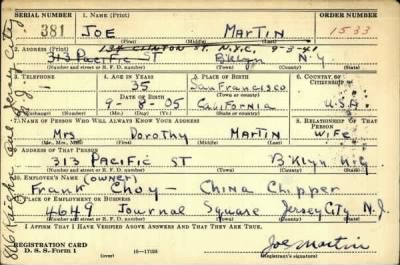 SERIAL NUMBER 1. NAME (Print) ORDER NUMBER
381 JOE MARTIN 1533
(First) (Middle) (Last)
134 CLINTON ST. N.Y.C. 9-3-41
2. ADDRESS (Print)
313 Pacific ST B'klyn N.Y
(Number and street or R. F. D. number) (Town) (County) (State)
3. TELEPHONE 4. AGE IN YEARS 5. PLACE OF BIRTH 6. COUNTRY OF CITIZENSHIP
— 35 San Francisco
(Town or county)
DATE OF BIRTH
9-8-05 California U.S.A.
(Exchange) (Number) (Mo.) (Day) (Yr.) (State or country)
7. NAME OF PERSON WHO WILL ALWAYS KNOW YOUR ADDRESS 8. RELATIONSHIP OF THAT PERSON
Mrs Dorothy MARTIN WIFE
(Mr., Mrs., Miss) (First) (Middle) (Last)
9. ADDRESS OF THAT PERSON
313 PACIFIC ST B'KLYN N.Y.
(Number and street or R. F. D. number) (Town) (County) (State)
10. EMPLOYER'S NAME (OWNER)
Frank Choy - China Chipper
11. PLACE OF EMPLOYMENT OR BUSINESS
4649 Journal Square Jersey City N.J.
(Number and street or R. F. D. number) (Town) (County) (State)
I AFFIRM THAT I HAVE VERIFIED ABOVE ANSWERS AND THAT THEY ARE TRUE.
REGISTRATION CARD
D. S. S. Form 1 (over) 16—17105 Joe Martin
Registrant's signature
Ave Jersey City
N.J.